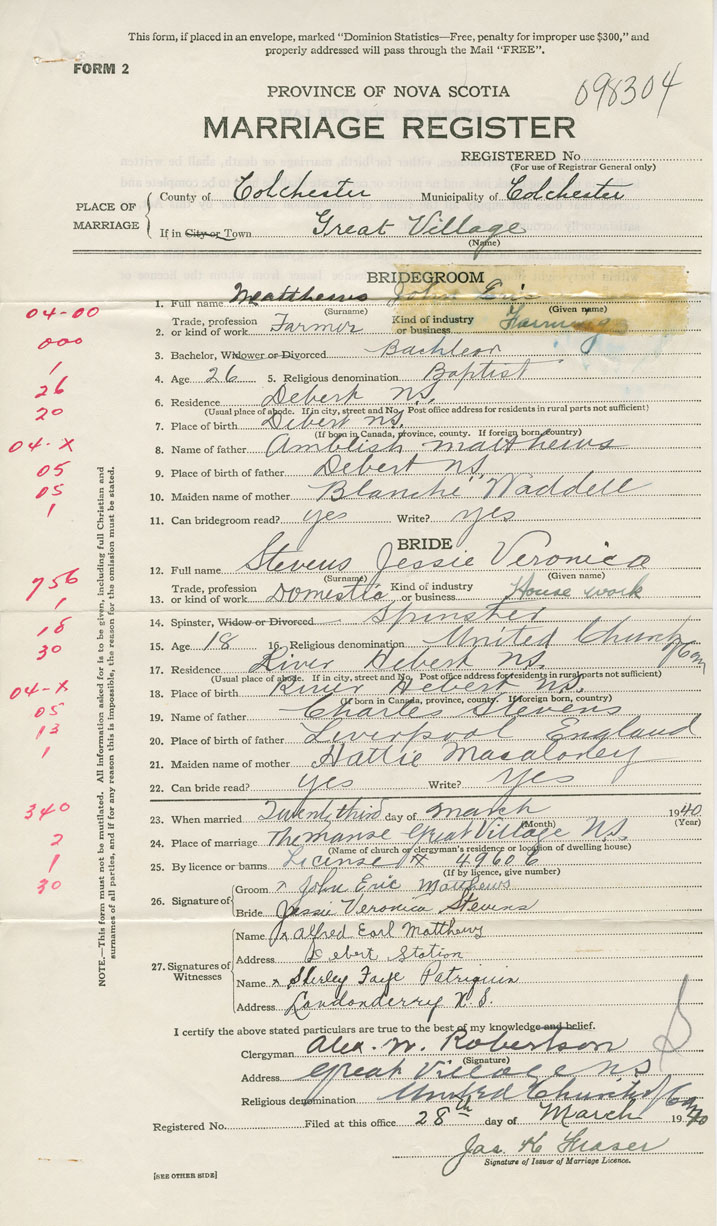 This form, if placed in an envelope, marked "Dominion Statistics—Free, penalty for improper use $300," and
properly addressed will pass through the Mail "FREE".
FORM 2
098304
PROVINCE OF NOVA SCOTIA
MARRIAGE REGISTER
REGISTERED No.
(For use of Registrar General only)
PLACE OF MARRIAGE
County of Colchester Municipality of Colchester
If in City or Town Great Village
(Name)
BRIDEGROOM
1. Full name Matthews John Eric
(Surname) (Given name)
04-00
2. Trade, profession or kind of work Farmer Kind of industry or business Farming
000
3. Bachelor, Widower or Divorced Bachleor
1
4. Age 26 5. Religious denomination Baptist
26
6. Residence Debert N.S.
(Usual place of abode. If in city, street and No. Post office address for residents in rural parts not sufficient)
20
7. Place of birth Debert N.S.
(If born in Canada, province, county. If foreign born, country)
8. Name of father Amblish Matthews
04-X
9. Place of birth of father Debert N.S.
05
10. Maiden name of mother Blanche Waddell
05
11. Can bridegroom read? yes Write? yes
1
BRIDE
12. Full name Stevens Jessie Veronica
(Surname) (Given name)
756
13. Trade, profession or kind of work Domestic Kind of industry or business House work
1
14. Spinster, Widow or Divorced Spinster
18
15. Age 18 16. Religious denomination United Church of Can
30
17. Residence River Hebert N.S.
(Usual place of abode. If in city, street and No. Post office address for residents in rural parts not sufficient)
18. Place of birth River Hebert N.S.
(If born in Canada, province, county. If foreign born, country)
04-X
19. Name of father Charles Stevens
05
20. Place of birth of father Liverpool England
13
21. Maiden name of mother Hattie
1
22. Can bride read? yes Write? yes
23. When married Twenty third day of March 1940
(Month) (Year)
340
24. Place of marriage The Manse Great Village N.S.
(Name of church or clergyman's residence or location of dwelling house)
2
25. By licence or banns License 49606
(If by licence, give number)
1
30
26. Signature of
Groom x John Eric Matthews
Bride Jessie Veronica Stevens
27. Signatures of Witnesses
Name x Alfred Earl Matthews
Address Debert Station
Name x Shirley Faye Patriquin
Address Londonderry N.S.
I certify the above stated particulars are true to the best of my knowledge and belief.
Clergyman Alex. W. Robertson
(Signature)
Address Great Village N.S.
Religious denomination United Church of Can
Registered No. Filed at this office 28th day of March 1940
Jas. K. Fraser
Signature of Issuer of Marriage Licence.
[SEE OTHER SIDE]
NOTE.—This form must not be mutilated. All information asked for is to be given, including full Christian and
surnames of all parties, and if for any reason this is impossible, the reason for the omission must be stated.